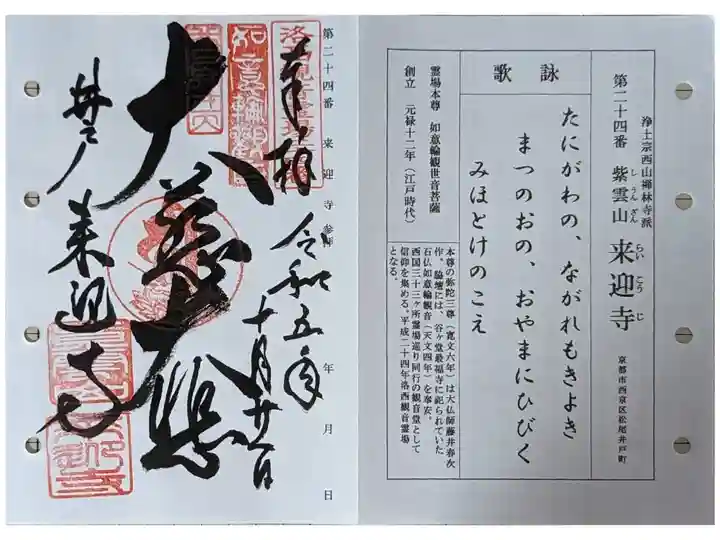 浄土宗西山禅林寺派
第二十四番 紫雲山 来迎寺
しうんざん らいこうじ
京都市西京区松尾井戸町
詠歌
たにがわの、ながれもきよき
まつのおの、おやまにひびく
みほとけのこえ
霊場本尊 如意輪観世音菩薩
創立 元禄十二年（江戸時代）
本尊の弥陀三尊（寛文六年）は大仏師藤井春次
作。脇壇には、谷ヶ堂最福寺に祀られていた
石仏如意輪観音（天文四年）を奉安。
西国三十三ヶ所霊場巡り同行の観音堂として
信仰を集める。平成二十四年洛西観音霊場
となる。
第二十四番 来迎寺参拝 年 月 日
奉拝 令和五年十月廿一日
如意輪観
大慈悲
井戸 来迎寺